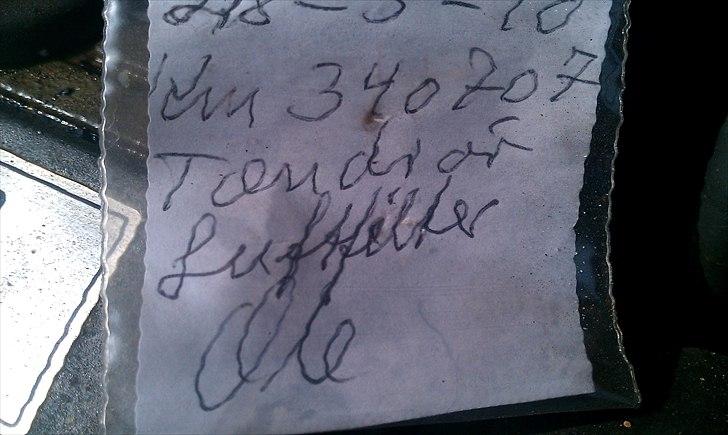 28-5-10
Km 340707
Tændrør
Luftfilter
Ole